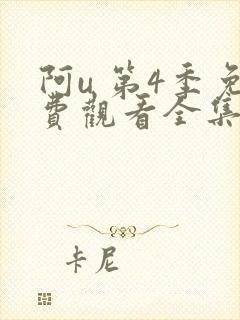 阿u 第4季免
費觀看全集
卡尼